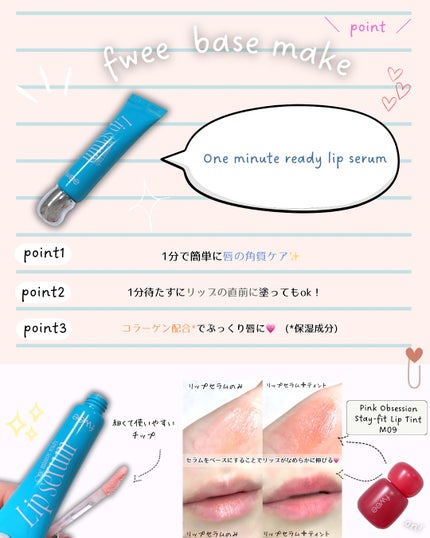 point
fwee base make
One minute ready lip serum
Lip serum
fwee
point1
1分で簡単に唇の角質ケア✨
point2
1分待たずにリップの直前に塗ってもok！
point3
コラーゲン配合*でぷっくり唇に💗 (*保湿成分)
リップセラムのみ
リップセラム+ティント
細くて使いやすい
チップ
Pink Obsession
Stay-fit Lip Tint
M09
セラムをベースにすることでリップがなめらかに伸びる💗
fwee
Lip serum
fwee
リップセラムのみ
リップセラム+ティント